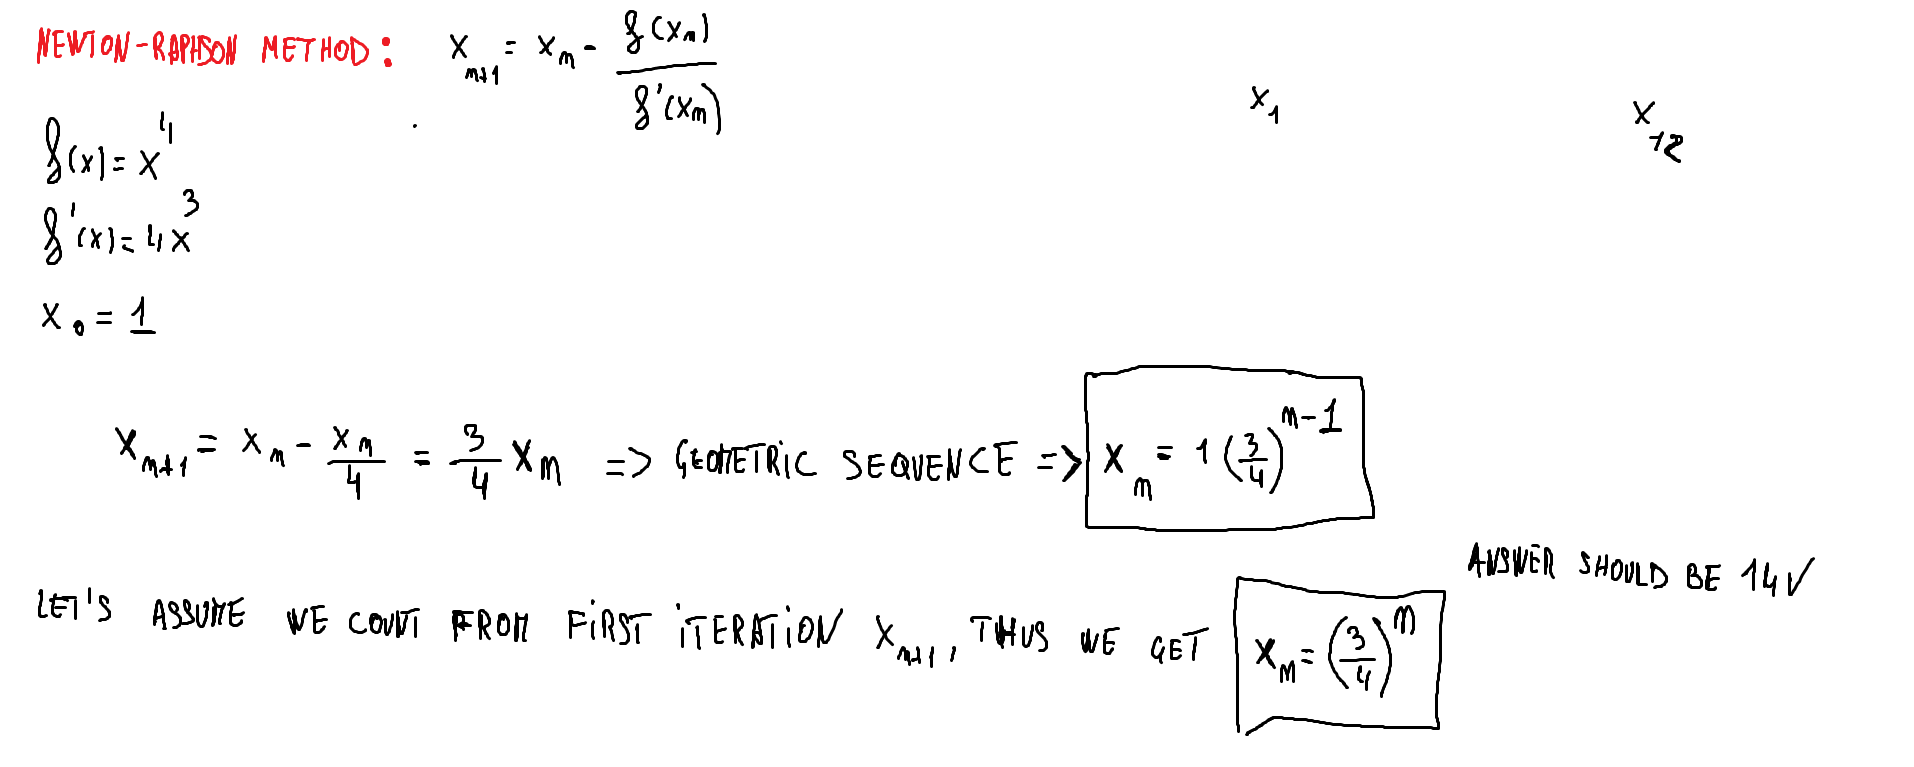 NEWTON-RAPHSON METHOD: x_{n+1} = x_n - f(x_n) / f'(x_n)
x_1 x_12
f(x) = x^4
f'(x) = 4x^3
x_0 = 1
x_{n+1} = x_n - x_n/4 = 3/4 x_n => GEOMETRIC SEQUENCE => x_n = 1 (3/4)^{n-1}
ANSWER SHOULD BE 14 ✓
LET'S ASSUME WE COUNT FROM FIRST ITERATION x_{n+1}, THUS WE GET x_n = (3/4)^n